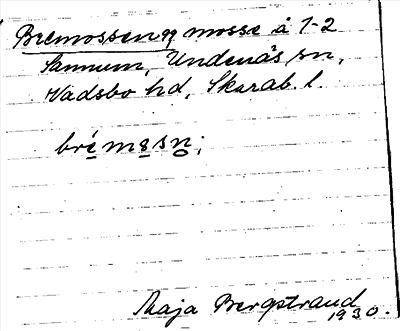 Bremossen, mosse å 1-2
Sannum, Undenäs sn,
Vadsbo hd, Skarab. l.
brémosn;
Maja Bergstrand
1930.